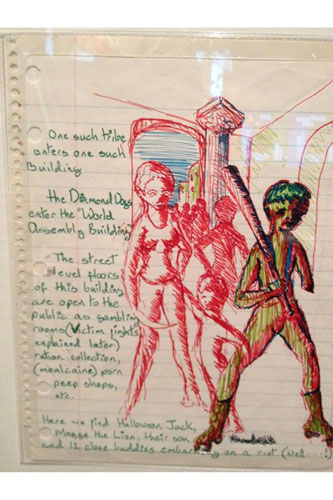 One such tribe
enters one such
Building
the Diamond Dogs
enter the "World
Assembly Building"
The street
level floors
of this building
are open to the
public as gambling
rooms (Victim fights
explained later)
ration collection,
(mealcaine) porn
peep shops,
etc.
Here we find Halloween Jack,
Magge the Lion, their son
and 12 close buddies embarking on a riot (Well